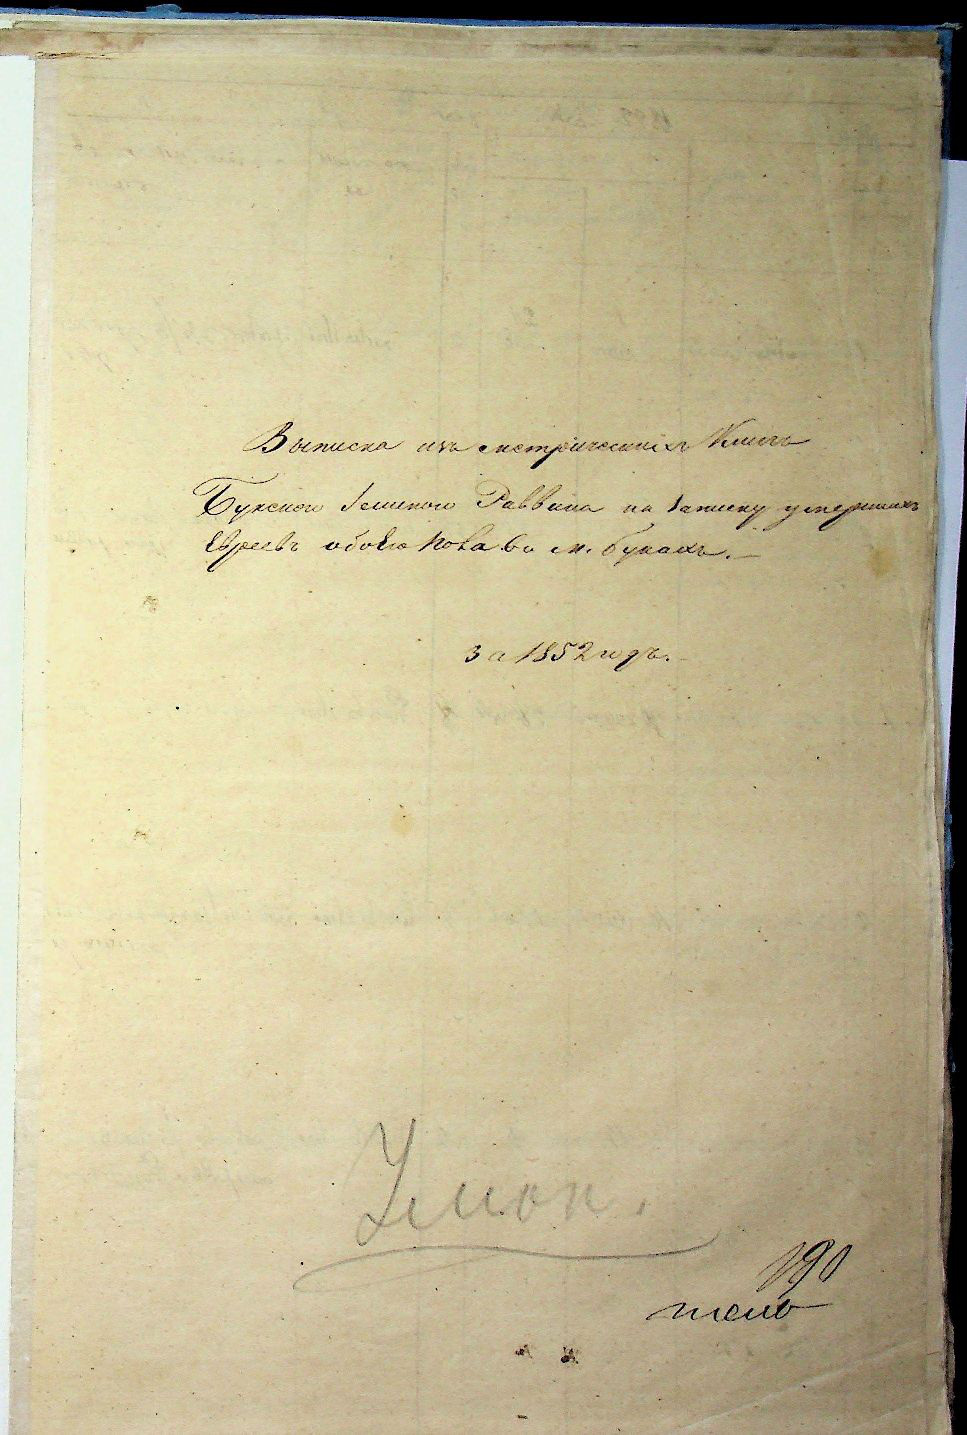 Выписка изъ метрическихъ Книгъ
Букского Раввина на записку умершихъ
Евреевъ обоего пола во м. Букахъ.
за 1852 годъ.
Умон.
190